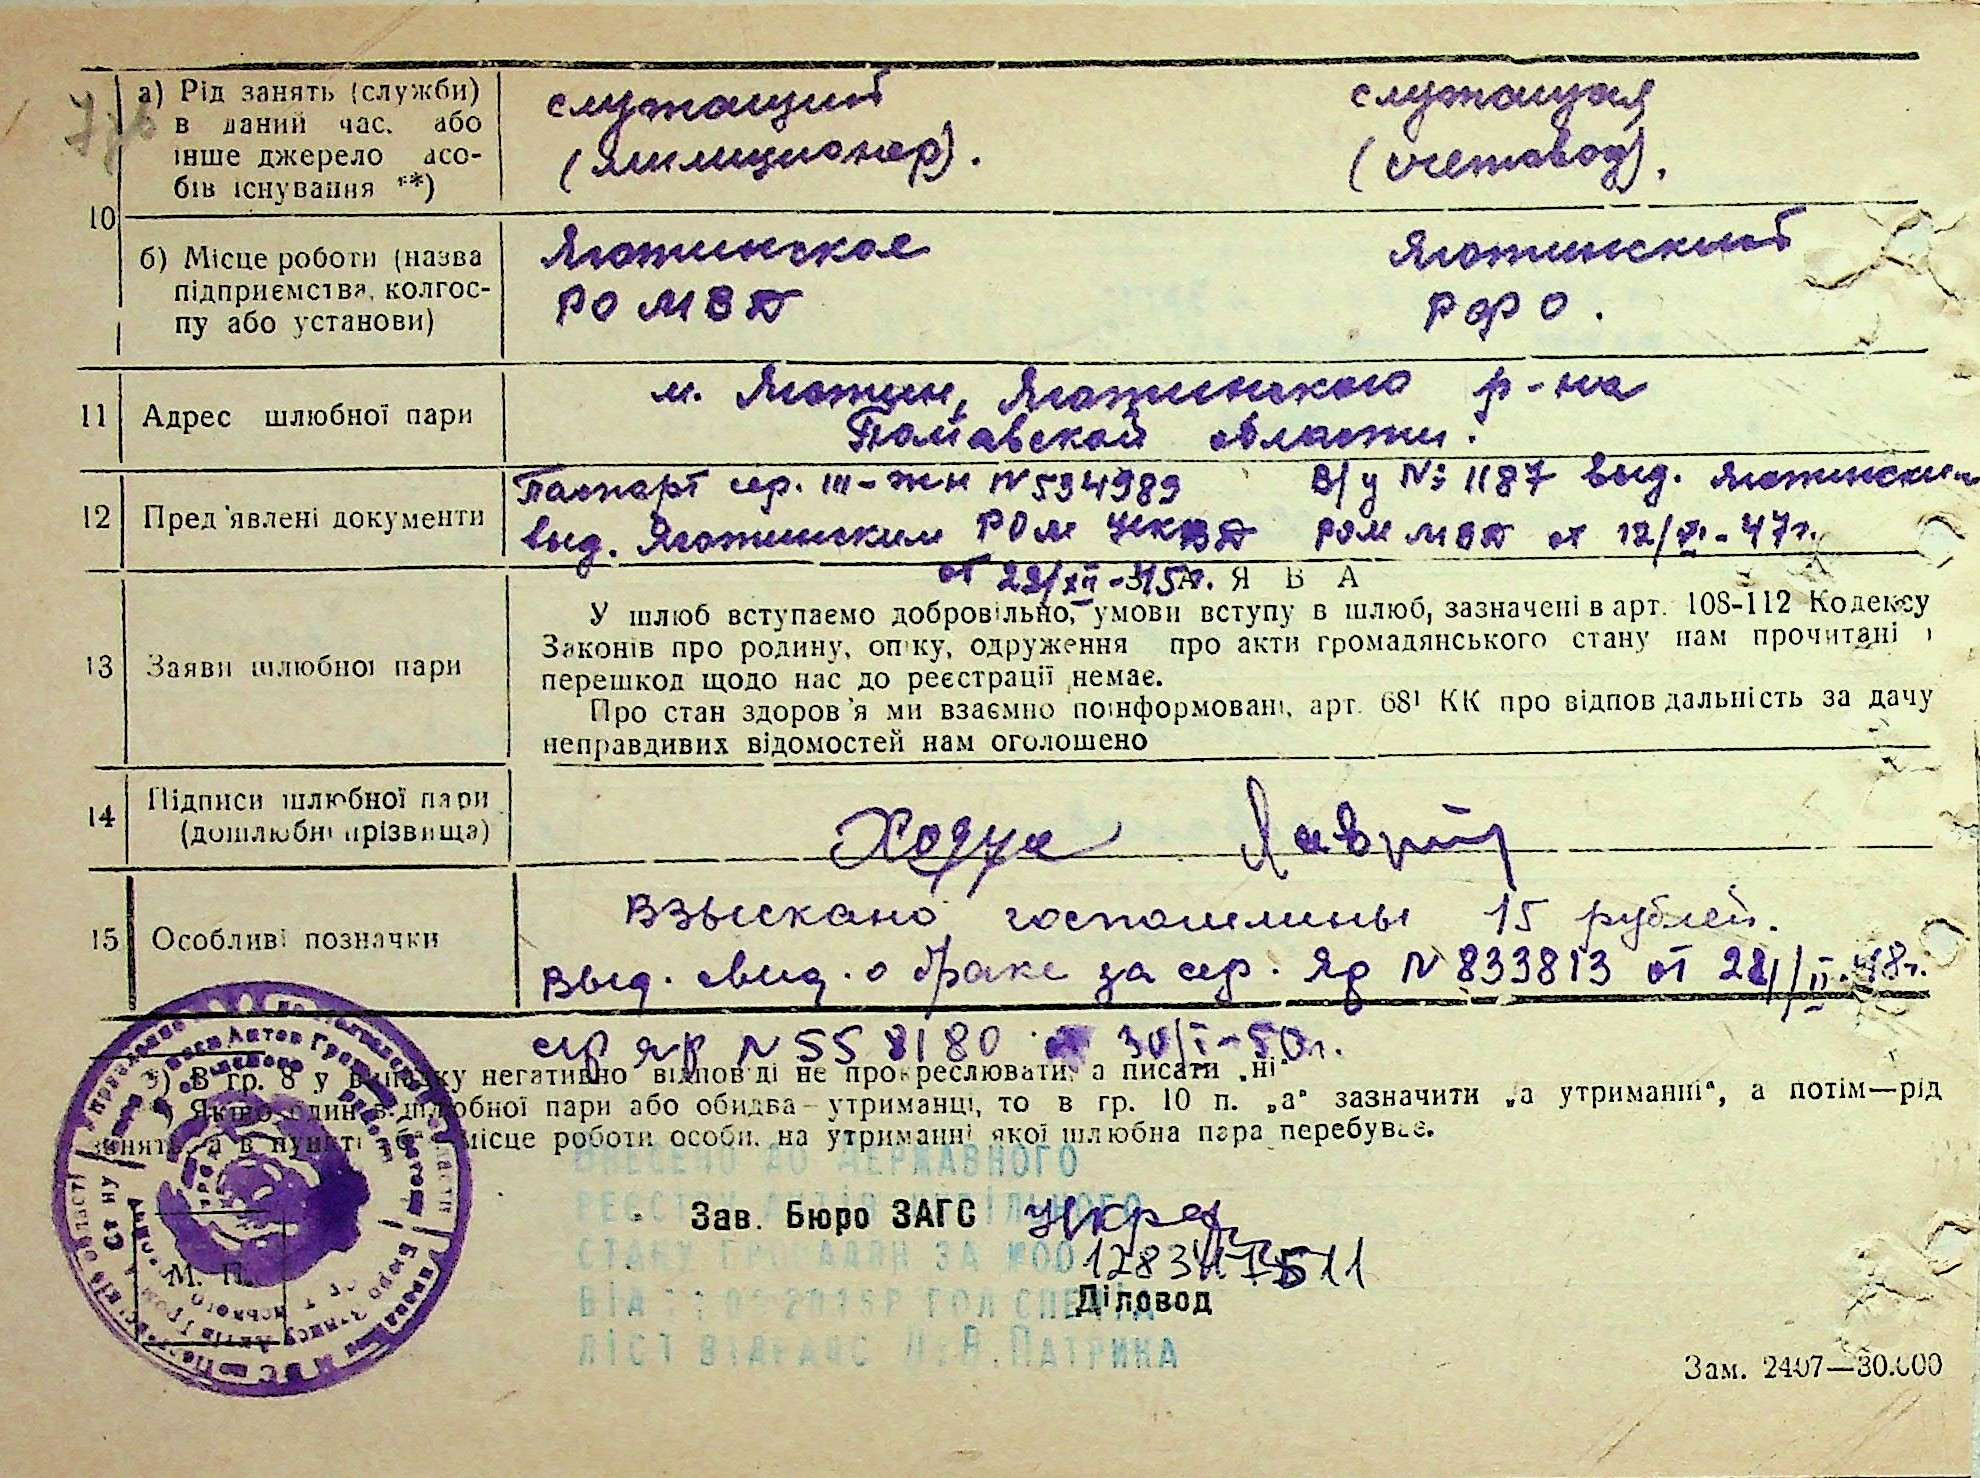 а) Рід занять (служби)
в даний час, або
інше джерело засо-
бів існування **)
служащий
(милиционер).
служащая
(счетовод).
10
б) Місце роботи (назва
підприємства, колгос-
пу або установи)
Яготинское
РО МВД
Яготинский
РФО.
11 Адрес шлюбної пари
м. Яготин, Яготинского р-на
Полтавской области.
12 Пред'явлені документи
Паспорт сер. III-жн N 534989
выд. Яготинским РОМ УНКВД
от 29/XII-45г.
В/у №: 1187 выд. Яготинским
РОМ МВД от 12/XI-47г.
13 Заяви шлюбної пари
ЗАЯВА
У шлюб вступаємо добровільно, умови вступу в шлюб, зазначені в арт. 108-112 Кодексу
Законів про родину, опіку, одруження про акти громадянського стану нам прочитані і
перешкод щодо нас до реєстрації немає.
Про стан здоров'я ми взаємно поінформовані, арт. 68¹ КК про відповідальність за дачу
неправдивих відомостей нам оголошено
14 Підписи шлюбної пари
(дошлюбні прізвища)
Ходуа
15 Особливі позначки
Взыскано госпошлины 15 рублей.
Выд. свид. о браке за сер. Яр N 833813 от 28/II-48г.
сер яр N 558180 от 30/I-50г.
*) В гр. 8 у випадку негативно відповіді не прокреслювати, а писати „ні"
**) Якщо один в шлюбної пари або обидва—утриманці, то в гр. 10 п. „а" зазначити „а утриманні", а потім—рід
занять, а в пункті „б" місце роботи особи, на утриманні якої шлюбна пара перебуває.
ВНЕСЕНО ДО ДЕРЖАВНОГО
РЕЄСТРУ АКТІВ ЦИВІЛЬНОГО
СТАНУ ГРОМАДЯН ЗА №00
Зав. Бюро ЗАГС
Діловод
ПАТРИКА
М. П.
Зам. 2407—30.000